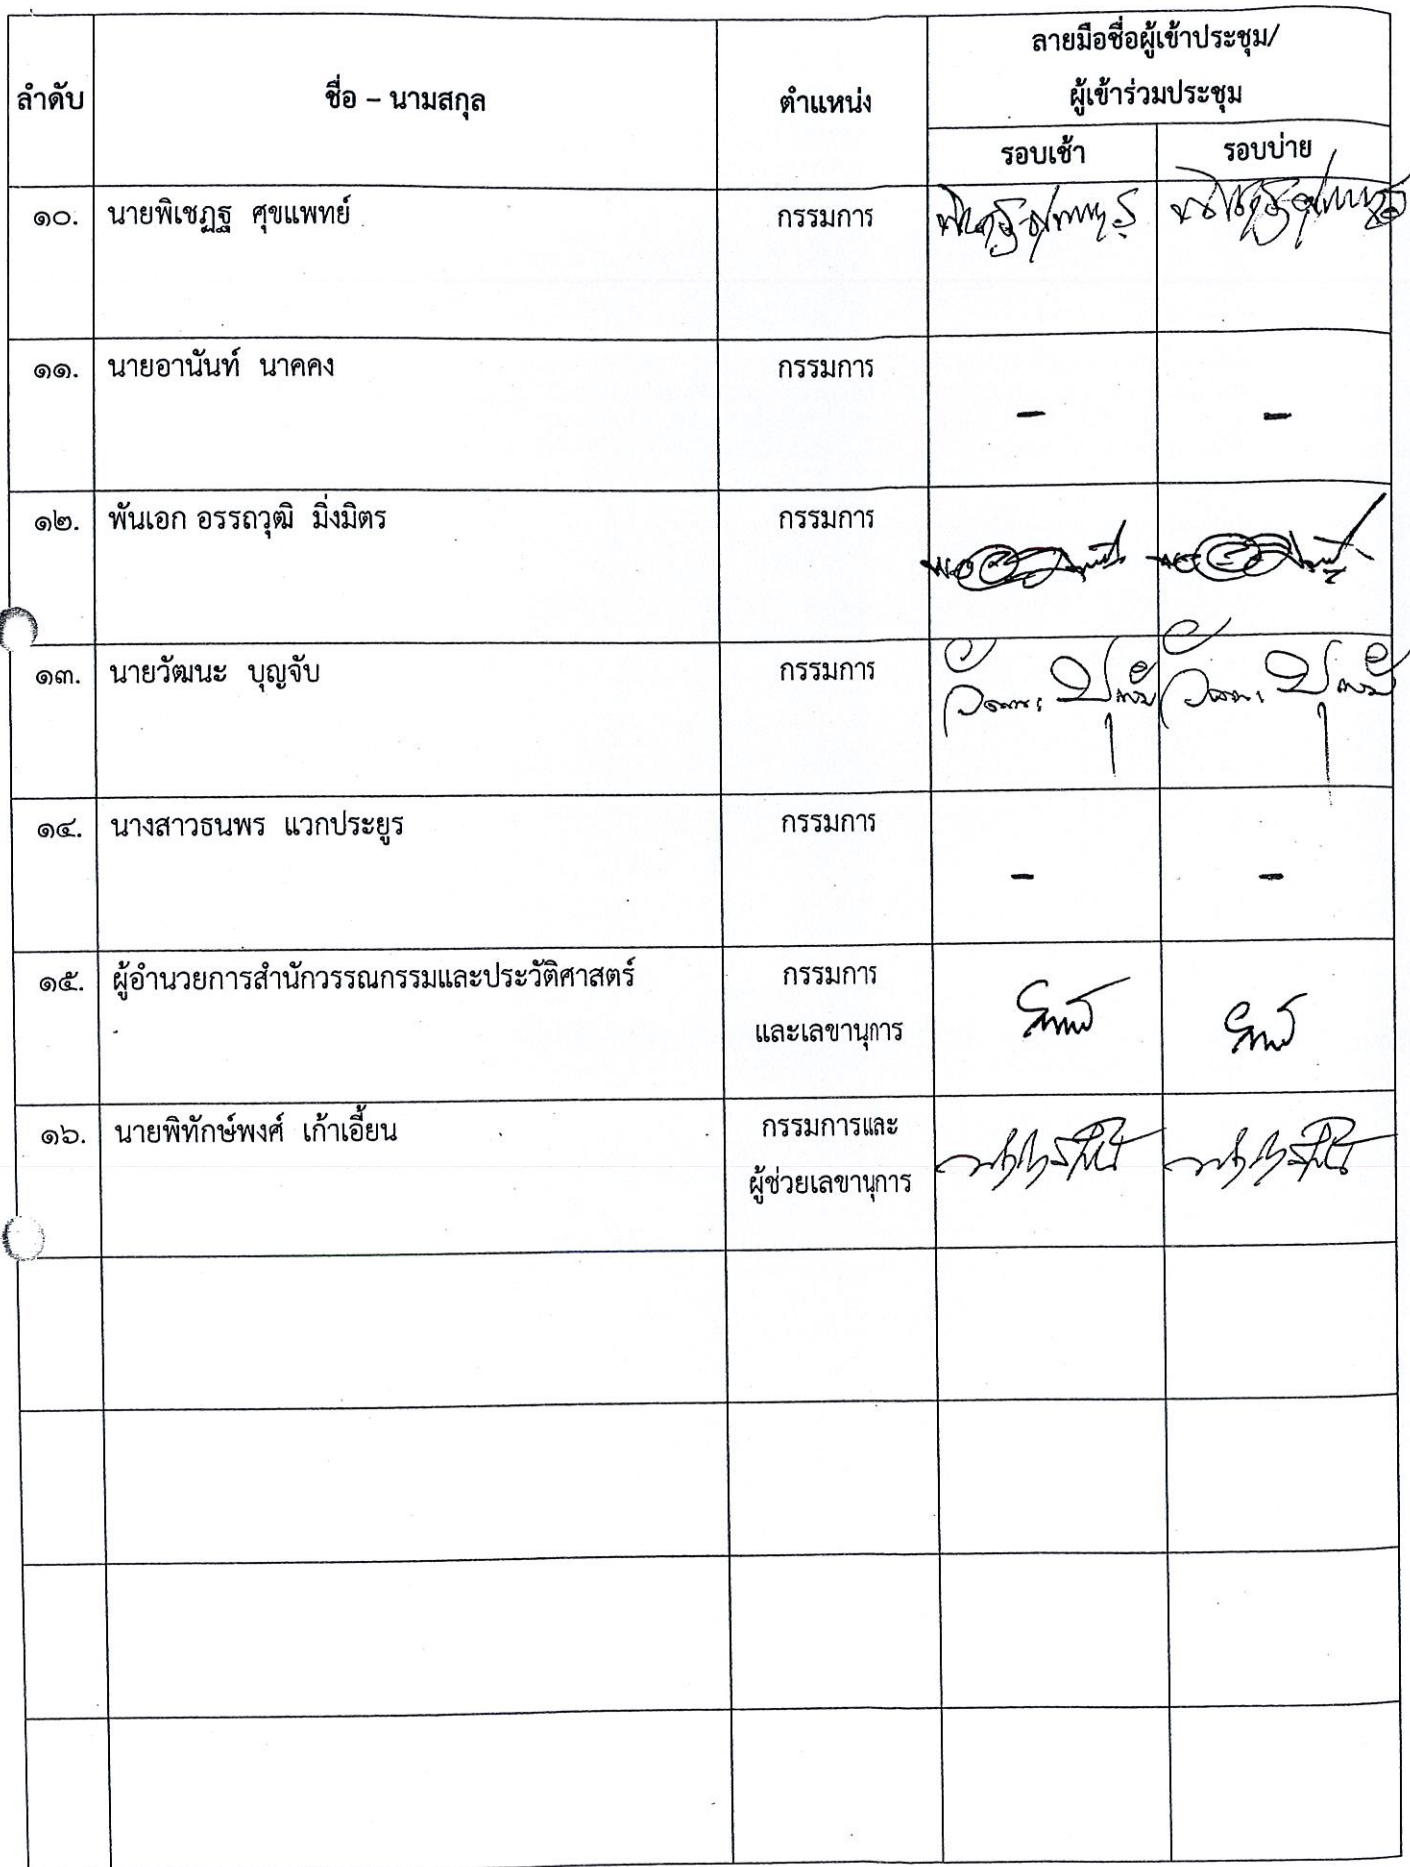 ลำดับ
ชื่อ – นามสกุล
ตำแหน่ง
ลายมือชื่อผู้เข้าประชุม/
ผู้เข้าร่วมประชุม
รอบเช้า
รอบบ่าย
๑๐. นายพิเชฏฐ ศุขแพทย์ กรรมการ
๑๑. นายอานันท์ นาคคง กรรมการ - -
๑๒. พันเอก อรรถวุฒิ มิ่งมิตร กรรมการ
๑๓. นายวัฒนะ บุญจับ กรรมการ
๑๔. นางสาวธนพร แวกประยูร กรรมการ - -
๑๕. ผู้อำนวยการสำนักวรรณกรรมและประวัติศาสตร์ กรรมการ
และเลขานุการ
๑๖. นายพิทักษ์พงศ์ เก้าเอี้ยน กรรมการและ
ผู้ช่วยเลขานุการ